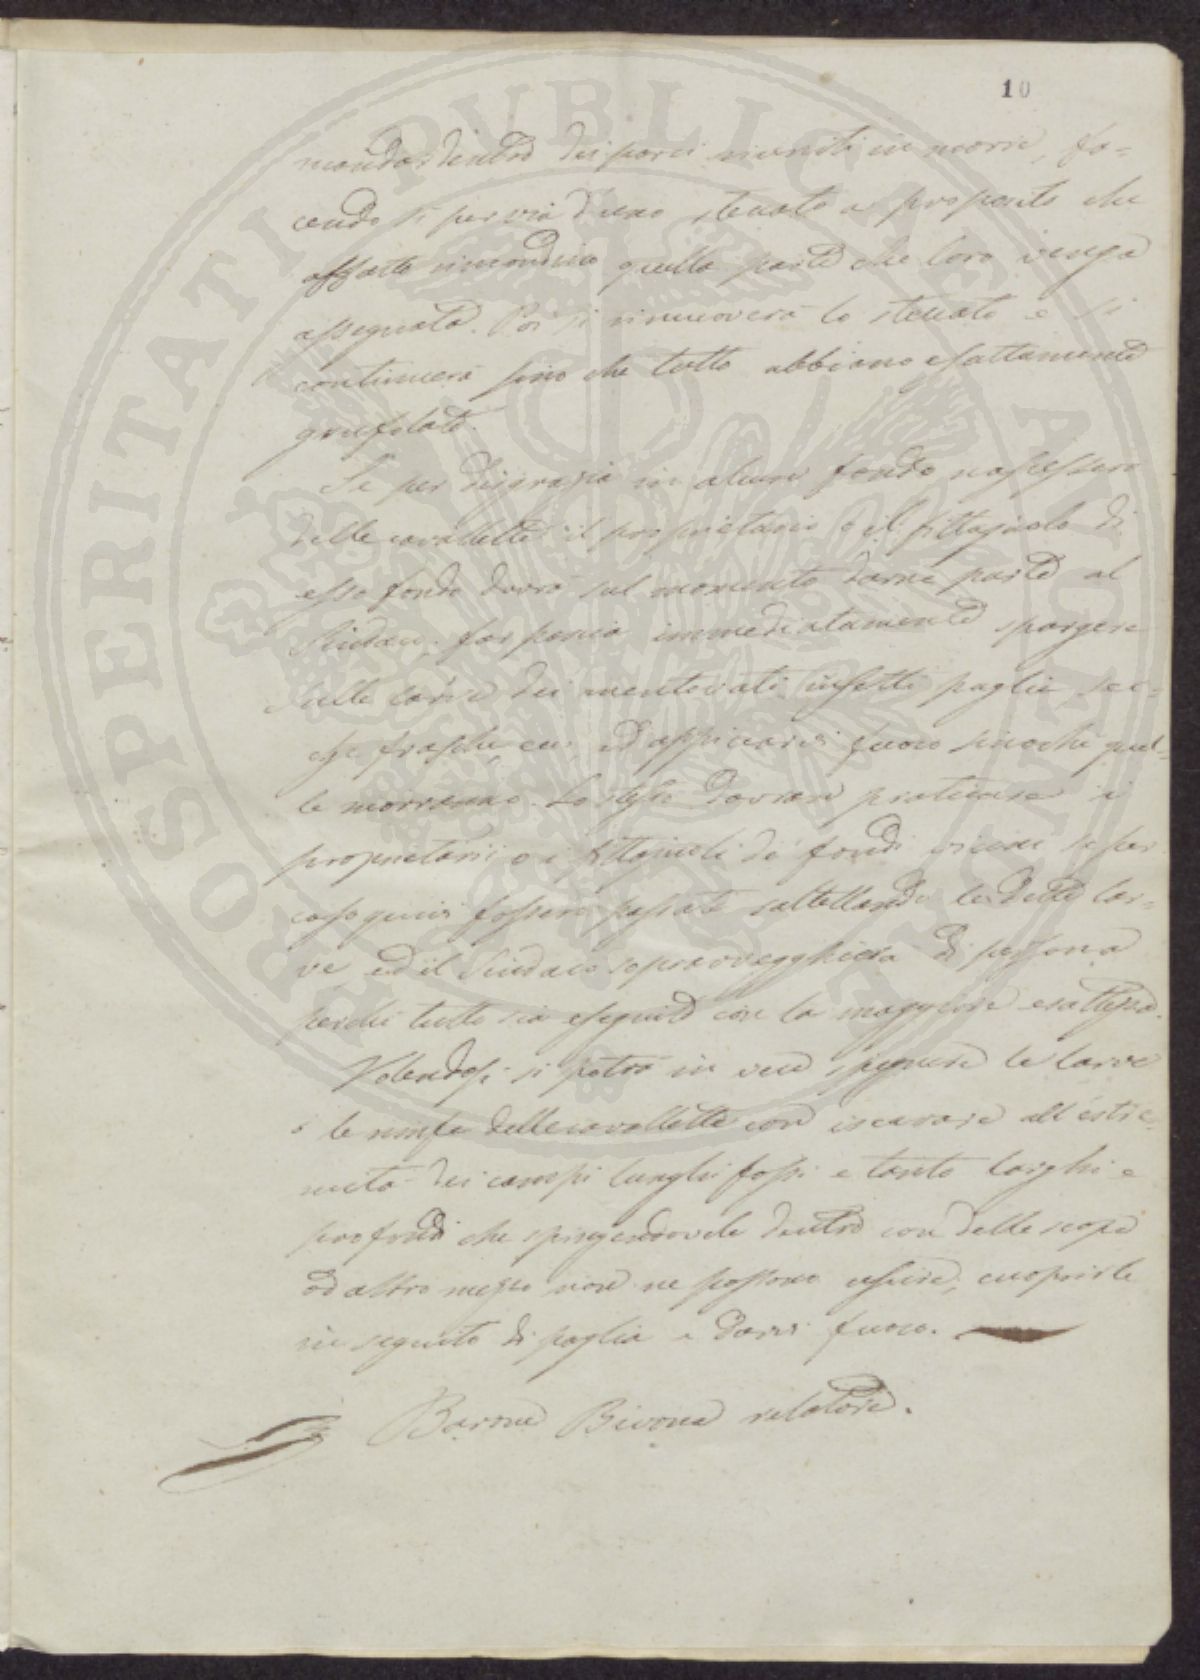 10
mandar dentro dei porci riuniti in morre, fa=
cendo sì per via d'uno steccato a proposito che
affatto rimondino quella parte che loro venga
assegnata. Poi si rimuoverà lo steccato e si
continuerà sino che tutto abbiano esattamente
grufolato.
Se per disgrazia in alcun fondo nascessero
delle cavallette il proprietario o il fittajuolo di
esso fondo dovrà sul momento darne parte al
Sindaco; far poscia immediatamente spargere
sulle larve dei mentovati insetti paglie sec=
che frasche ed appiccarvi fuoco sinochè quel=
le morranno. Lo stesso dovran praticare i
proprietarii o i fittajuoli de' fondi vicini se per
caso quivi fossero passate saltellando le dette lar=
ve, ed il Sindaco sopravvegghierà di persona
perchè tutto sia eseguito con la maggiore esattezza.
Volendosi si potrà in vece spegnere le larve
o le ninfe delle cavallette con iscavare all'estre
mità dei campi lunghi fossi e tanto larghi e
profondi che spingendovele dentro con delle scope
od altro mezzo non ne possono uscire, cuoprirle
in seguito di paglia e darvi fuoco.
Barone Bivona relatore.
PROSPERITATI PVBLICAE AVGENDAE